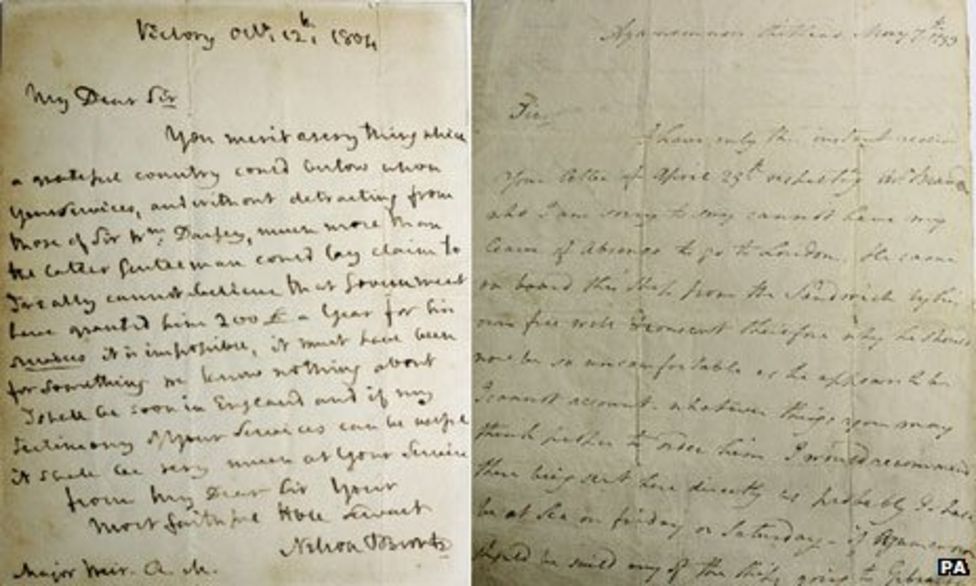 Victory Octr. 12th, 1804
My Dear Sir
You merit every thing which
a grateful country could bestow upon
Your Services, and without detracting from
those of Sir Wm.
much more than
the latter Gentleman could lay claim to
I really cannot believe that Government
have granted him 200 £ a Year for his
services it is impossible, it must have been
for something we know nothing about
I shall be soon in England and if my
testimony of Your Services can be useful
it shall be very much at Your Service
from My Dear Sir Your
Most faithful Hble Servant
Nelson & Bronte
Major Weir.
Agamemnon May 7th 1793
Sir
I have only this instant
Your letter of April 29th respecting
who I am sorry to say cannot have my
leave of absence to go to London. He came
on board this Ship from the Sandwich by his
own free will & consent therefore why he should
now be so uncomfortable as he appears to be
I cannot account. whatever things you may
think further to order him I would recommend
their being sent here directly as probably I shall
be at Sea on friday or Saturday - if Agamemnon
should be sailed any of the Ships going to Gibraltar
PA